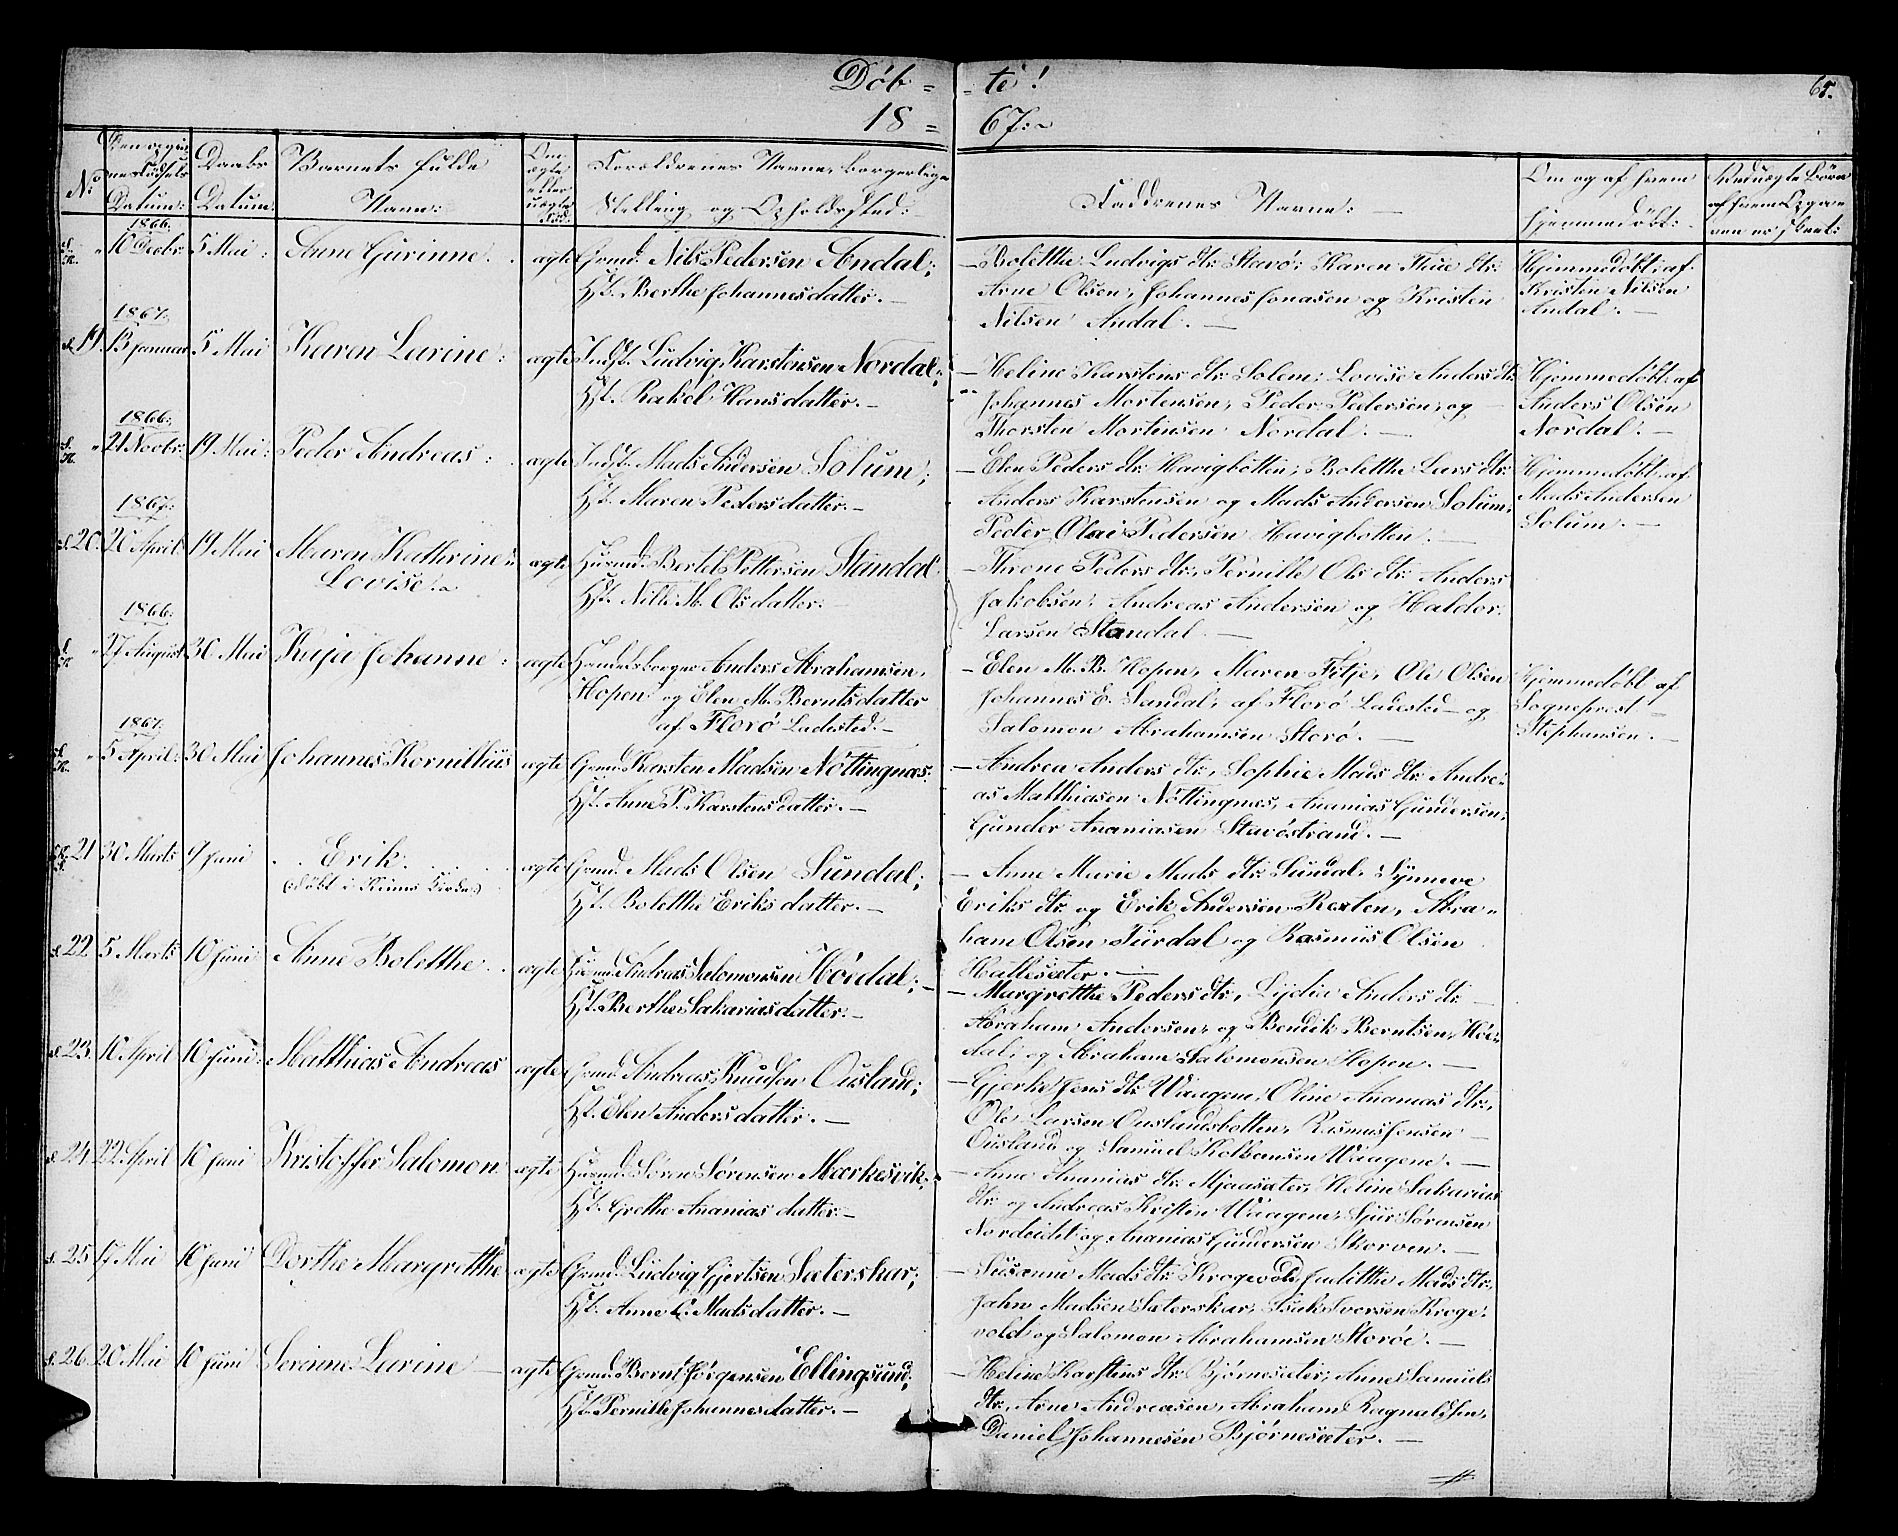 Døb- -te!
18- 67:
65.
No
Datum:
Daabs Datum:
Barnets fulde Navn:
Om ægte eller uægte fød:
Forældrenes Navne, borgerlige Stilling og Opholdssted:
Faddrenes Navne: —
Om og af hvem hjemmedøbt:
1866:
" 10 Decbr. 5 Mai: Anne Gurinne. ægte Grmd. Nils Pedersen Andal;
Hst. Berthe Johannesdatter. —
— Bolethe Ludvigs dtr. Storø; Karen Thue dtr.
Arne Olsen, Johannes Jonasen og Kristen
Nilsen Andal. —
Hjemmedøbt af
Kristen Nilsen
Andal. —
1867:
19. 13 Januar 5 Mai Karen Larine: ægte Indst. Ludvig Karstensen Nordal;
Hst. Rakel Hansdatter. —
— Heline Karstens dtr. Solem; Lovise Anders dtr.
Johannes Mortensen, Peder Pedersen, og
Thorsten Mortensen Nordal. —
Hjemmedøbt af
Anders Olsen
Nordal. —
1866:
" 21 Novbr. 19 Mai: Peder Andreas: ægte Indst. Mads Andersen Solum;
Hst. Maren Pedersdatter. —
— Elen Peders dtr. Havigbotten; Bolethe Lars dtr.
Anders Karstensen og Mads Andersen Solum,
Peder Olai Pedersen Havigbotten. —
Hjemmedøbt af
Mads Andersen
Solum. —
1867:
20. 20 April 19 Mai Maren Kathrine
Lovise: ægte Husmd. Bertel Pettersen Standal
Hst. Nille M. Olsdatter: —
— Throne Peders dtr., Pernille Ols dtr. Anders
Jakobsen, Andreas Andersen og Haldor
Larsen Standal. —
1866:
" 27 August 30 Mai Kaja Johanne: ægte Handelsborger Anders Abrahamsen
Hopen og Elen M. Berntsdatter
af Florø Ladested. —
— Elen M. B. Hopen, Maren Fitje, Ole Olsen
Johannes E. Sandal, af Florø Ladested — og
Salomon Abrahamsen Storø. —
Hjemmedøbt af
Sogneprest
Stephansen. —
1867:
" 5 April: 30 Mai Johannes Kornillius ægte Grmd. Karsten Madsen Nøttingnæs:
Hst. Anne P. Karstensdatter. —
— Andrea Anders dtr., Sophie Mads dtr. Andre-
as Matthiasen Nøttingnes, Ananias Gundersen,
Gunder Ananiasen Stavøstrand. —
21 30 Marts 9 Juni Erik.
(døbt i Kinns Kirke) ægte Grmd. Mads Olsen Sundal;
Hst. Bolethe Eriksdatter. —
— Anne Marie Mads dtr. Sundal, Synneve
Eriks dtr. og Erik Andersen Rexten, Abra-
ham Olsen Turdal og Rasmus Olsen
Hallesæter. —
22. 5 Marts 10 Juni Anne Bolethe. ægte Husmd. Andreas Salomonsen Høidal; —
Hst. Berthe Sakariasdatter. —
— Margrethe Peders dtr., Lydia Anders dtr. —
Abraham Andersen, og Bendik Berntsen, Høi-
dal, og Abraham Salomonsen Hopen. —
23. 10 April 10 Juni: Matthias Andreas ægte Grmd. Andreas Knudsen Ousland;
Hst. Elen Andersdatter. —
— Gjerke Jens dtr. Waagene, Oline Ananias dtr.,
Ole Larsen Ouslandsbotten, Rasmus Jensen —
Ousland og Samuel Kolbensen Waagene. —
24. 22 April 10 Juni Kristoffer Salomon ægte Husmd. Søren Sørensen Markesvik;
Hst. Grethe Ananiasdatter. —
— Anne Ananias dtr. Mjaasæter, Heline Sakarias
dtr. og Andreas Kristen Waagene, Sjur Sørensen
Nordeidet og Ananias Gundersen Skorven. —
25. 17 Mai 10 Juni Dorthe Margrethe ægte Grmd. Ludvig Gjertsen Sæterskar;
Hst. Anne E. Madsdatter. —
— Susanne Mads dtr. Krogevold, Judithe Mads dtr.
Jahn Madsen Sæterskar, Isak Iversen Kroge-
vold og Salomon Abrahamsen Storøe. —
26. 20 Mai 10 Juni Serinne Larine — ægte Grmd. Bernt Jørgensen Ellingsund;
Hst. Pernille Johannesdatter. —
— Heline Karstens dtr. Bjørnesæter, Anne Samuels
dtr., Arne Andreasen, Abraham Ragnaldsen,
Daniel Johannesen Bjørnesæter. —